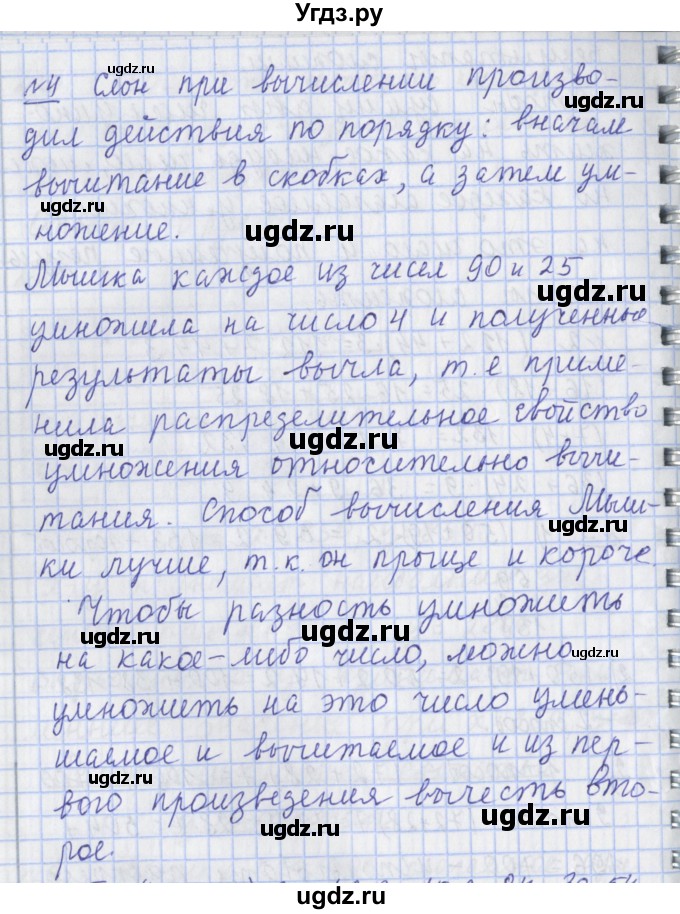 Угдз.ру
№4 Слон при вычислении произво-
дил действия по порядку: вначале
вычитание в скобках, а затем ум-
ножение.
Мышка каждое из чисел 90 и 25
умножила на число 4 и полученные
результаты вычла, т.е приме-
нила распределительное свойство
умножения относительно вычи-
тания. Способ вычисления Мыш-
ки лучше, т.к. он проще и короче.
Чтобы разность умножить
на какое-либо число, можно
умножить на это число умень-
шаемое и вычитаемое и из пер-
вого произведения вычесть вто-
рое.
ugdz.ru